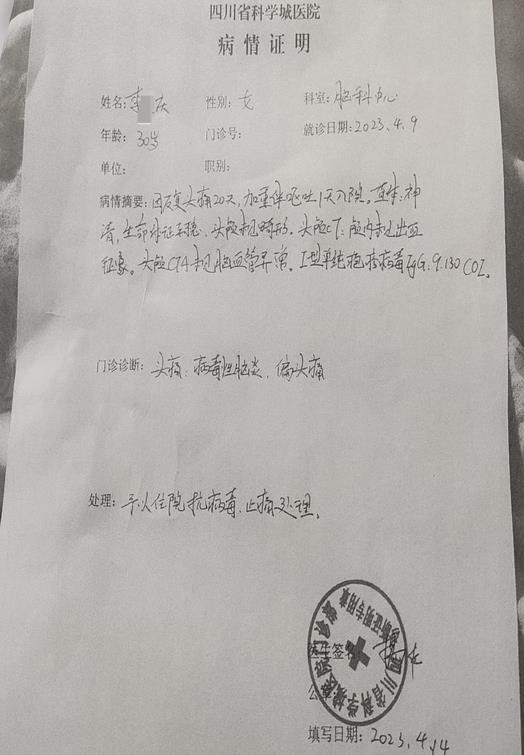 四川省科学城医院
病情证明
姓名: 李 庆 性别: 女 科室: 脑科中心
年龄: 30岁 门诊号: 就诊日期: 2023.4.9
单位: 职别:
病情摘要: 因反复头痛20天,加重伴呕吐1天入院。查体:神
清,生命体征平稳、头颅未见畸形。头颅CT:颅内未见出血
征象。头颅CTA未见脑血管异常。I型单纯疱疹病毒IgG:9.130 COI。
门诊诊断: 头痛:病毒性脑炎、偏头痛
处理: 予以住院抗病毒、止痛处理。
医生签名
公
四川省科学城医院
诊断证明专用章
填写日期: 2023.4.14